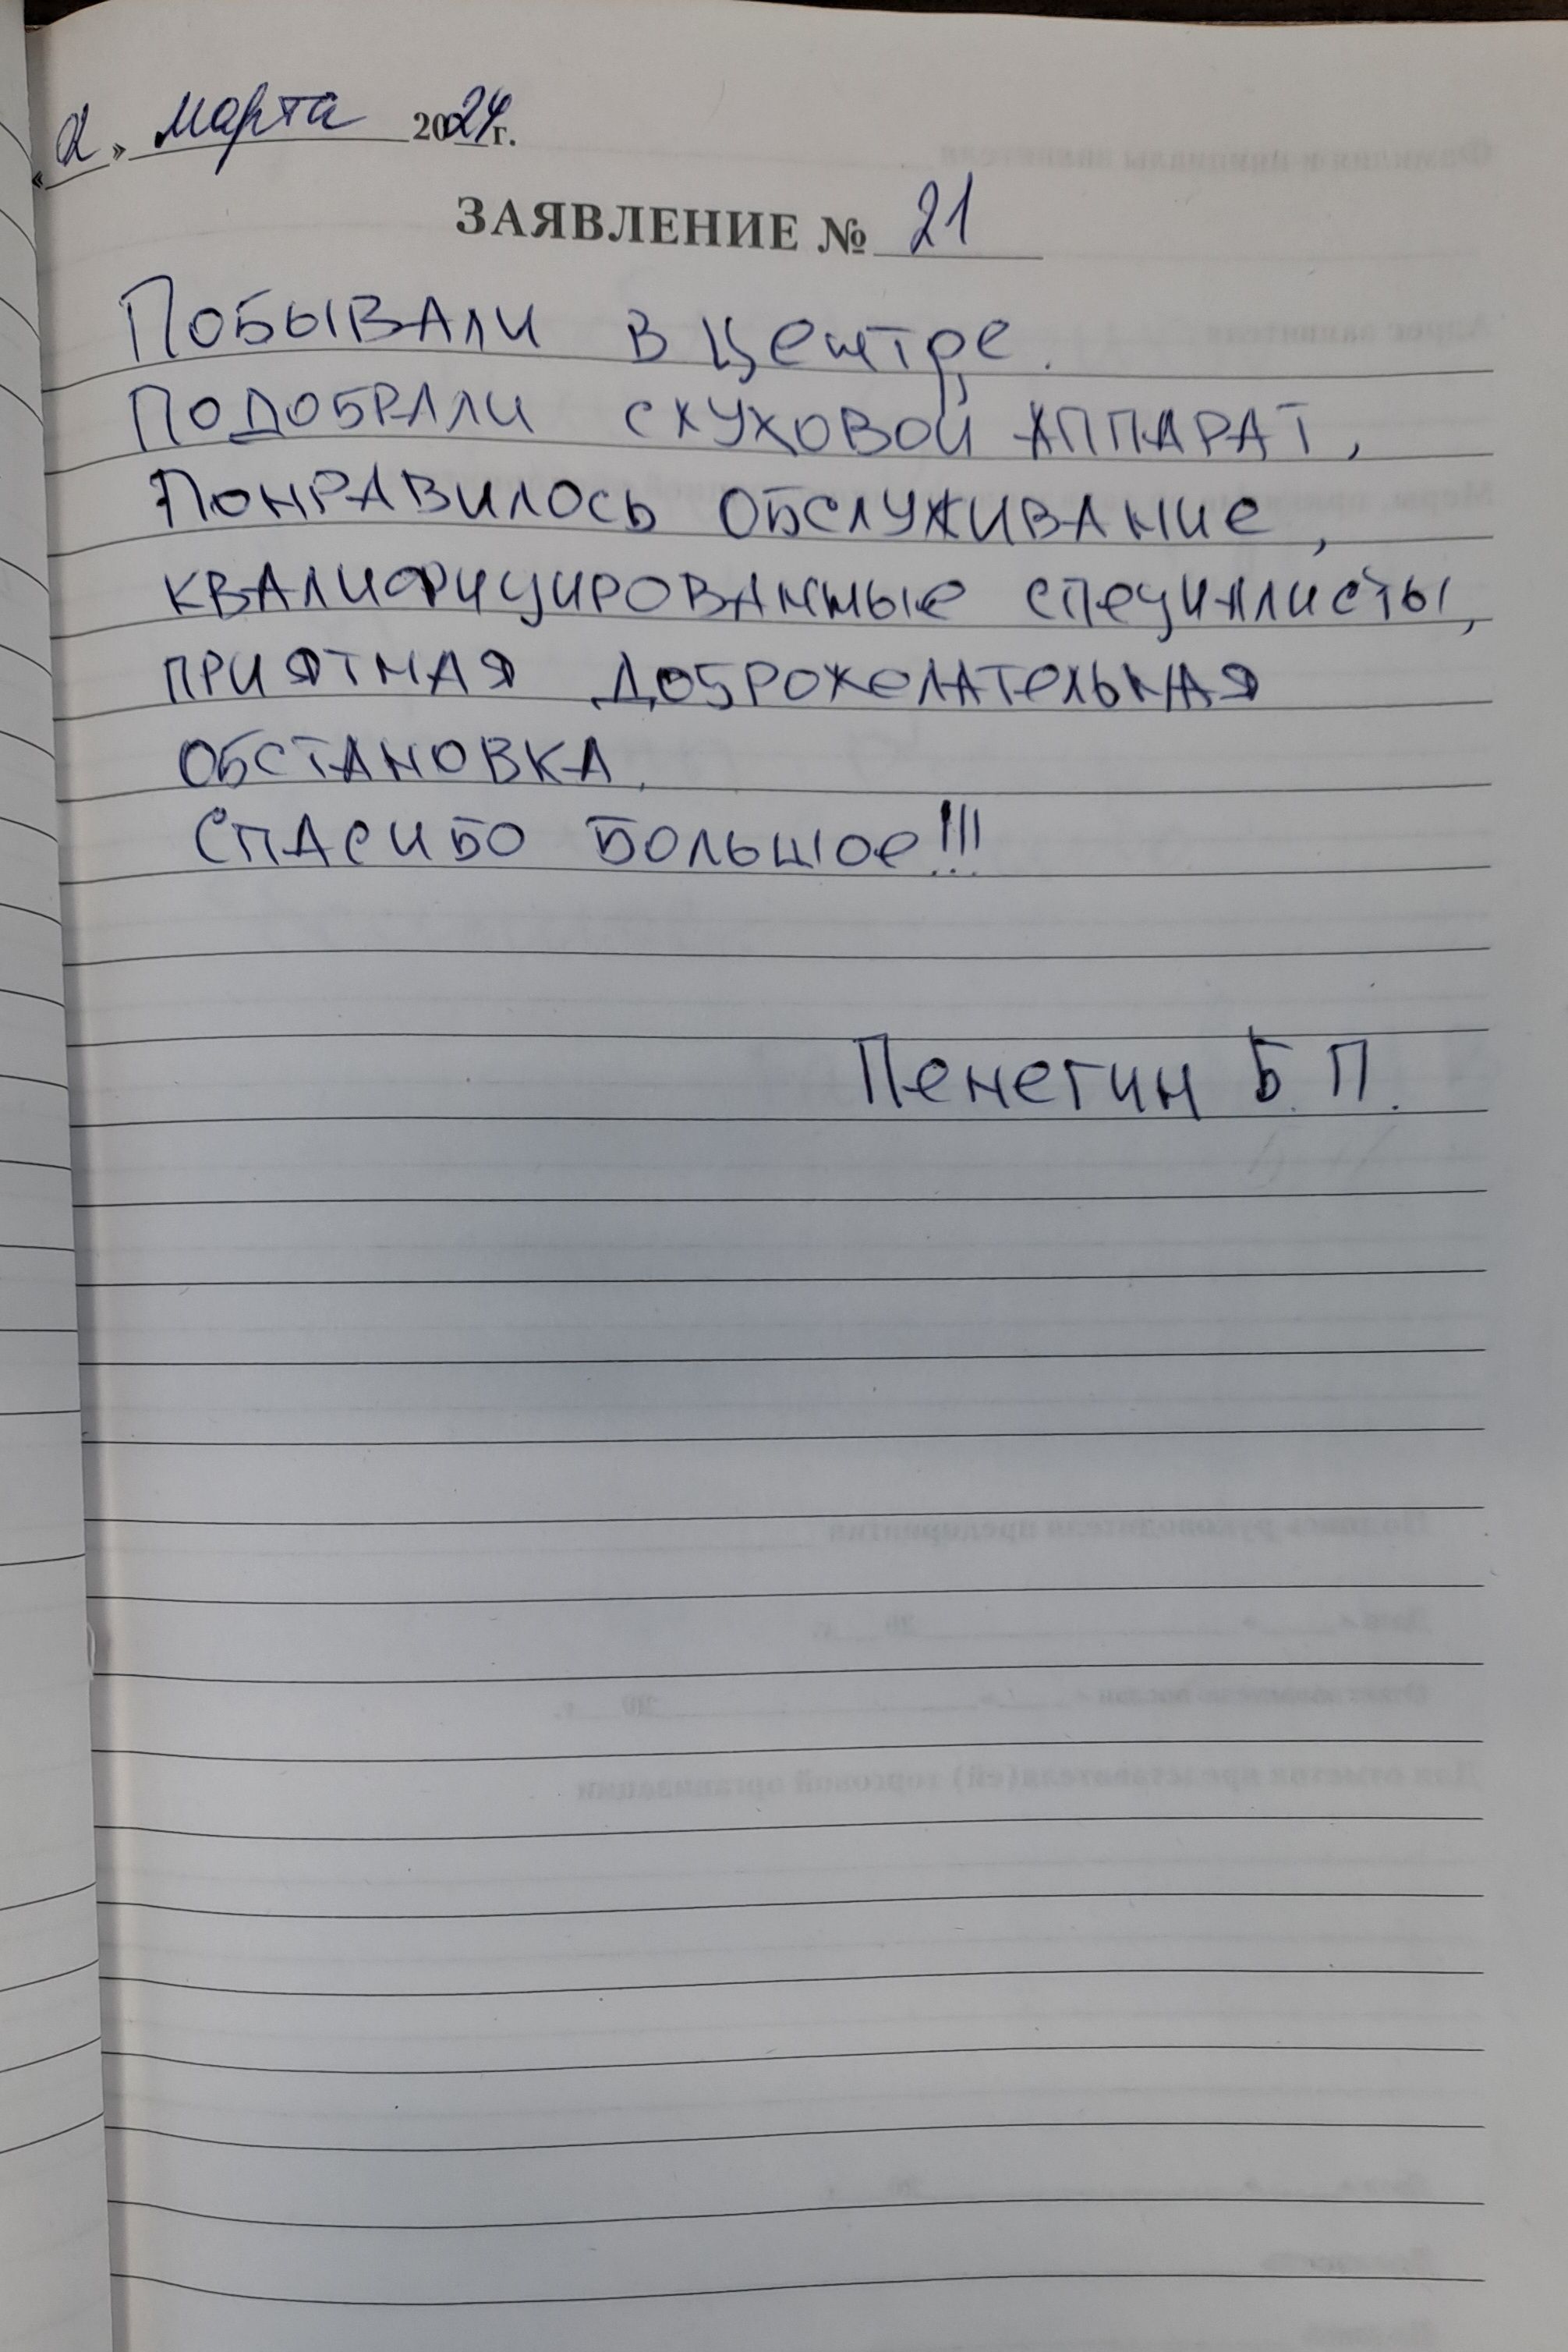 «2» марта 2024г.
ЗАЯВЛЕНИЕ № 21
Побывали в Центре.
Подобрали слуховой аппарат,
Понравилось обслуживание,
квалифицированные специалисты,
приятная доброжелательная
обстановка.
Спасибо большое!!!
Пенегин Б.П.